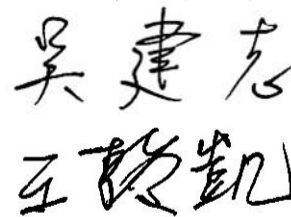 吴建志
王乾凯